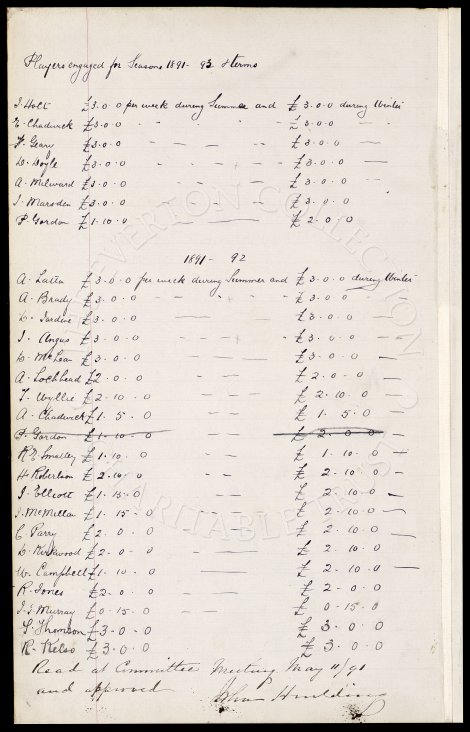 Players engaged for Seasons 1891-93 & terms
J. Holt £3.0.0 per week during Summer and £3.0.0 during Winter
E. Chadwick £3.0.0 " - " - " £3.0.0 —
F. Geary £3.0.0 - " - - " £3.0.0 —
D. Doyle £3.0.0 " - - " £3.0.0 —
A. Milward £3.0.0 — — £3.0.0 —
J. Marsden £3.0.0 — — £3.0.0 —
P. Gordon £1.10.0 — £2.0.0
1891 - 92
A. Latta £3.0.0 per week during Summer and £3.0.0 during Winter
A. Brady £3.0.0 - - " - " £3.0.0 —
D. Jardine £3.0.0 - - — — £3.0.0 —
J. Angus £3.0.0 - - — - " £3.0.0 —
D. McLean £3.0.0 - - — £3.0.0 —
A. Lochhead £2.0.0 - - — £2.0.0 —
T. Wyllie £2.10.0 - - — £2.10.0 —
A. Chadwick £1.5.0 - — £1.5.0 —
P. Gordon £1.10.0 £2.0.0 —
R. E. Smalley £1.10.0 - — £1.10.0 —
H Robertson £2.10.0 - — £2.10.0 —
J. Elliott £1.15.0 - — £2.10.0 —
J. McMillan £1.15.0 - — £2.10.0 —
C. Parry £2.0.0 - — £2.10.0 —
D. Kirkwood £2.0.0 - — £2.10.0
W. Campbell £1.10.0 — £2.10.0 —
R. Jones £2.0.0 - — £2.0.0
J. G. Murray £0.15.0 - — £0.15.0
S. Thomson £3.0.0 £3.0.0
R. Kelso £3.0.0 £3.0.0
Read at Committee Meeting May 11/91
and approved John Houlding
EVERTON COLLECTION
CHARITABLE TRUST